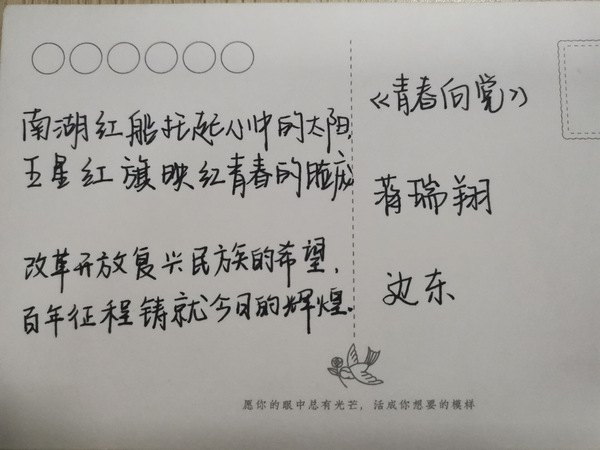 南湖红船托起心中的太阳,
五星红旗映红青春的脸庞
改革开放复兴民族的希望,
百年征程铸就今日的辉煌。
《青春向党》
蒋瑞翔
边东
愿你的眼中总有光芒，活成你想要的模样